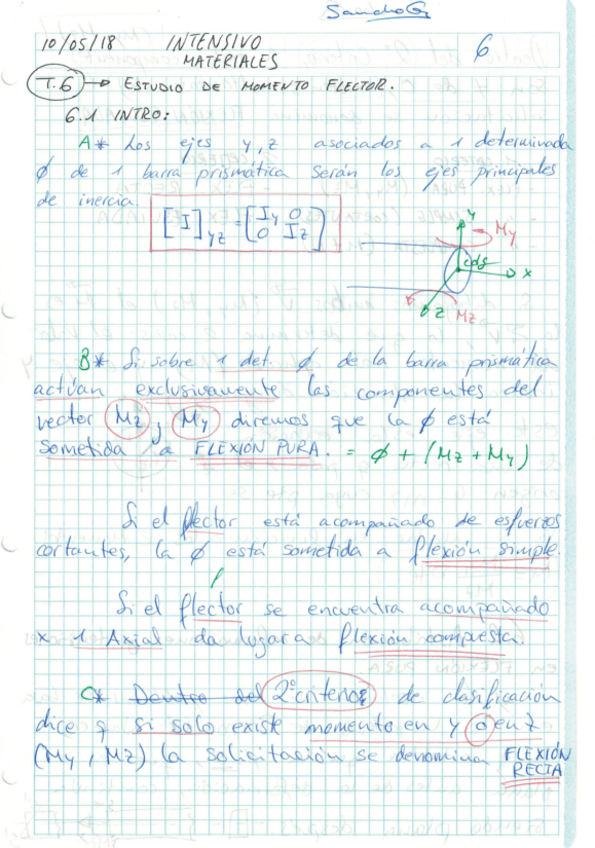 Sandro G
10/05/18 INTENSIVO 6
MATERIALES
T.6 → ESTUDIO DE MOMENTO FLECTOR.
6.1 INTRO:
A* Los ejes y, z asociados a 1 determinada
ϕ de 1 barra prismática serán los ejes principales
de inercia.
[I]yz = [Iy 0
0 Iz]
y My
cdg x
z Mz
B* Si sobre 1 det. ϕ de la barra prismática
actúan exclusivamente las componentes del
vector Mz y My diremos que la ϕ está
sometida a FLEXIÓN PURA. = ϕ + (Mz + My)
Si el flector está acompañado de esfuerzos
cortantes, la ϕ está sometida a flexión simple.
Si el flector se encuentra acompañado
x 1 Axial da lugar a flexión compuesta.
C* Dentro del 2º criterio de clasificación
dice q si solo existe momento en y o en z
(My, Mz) la solicitación se denomina FLEXIÓN
RECTA